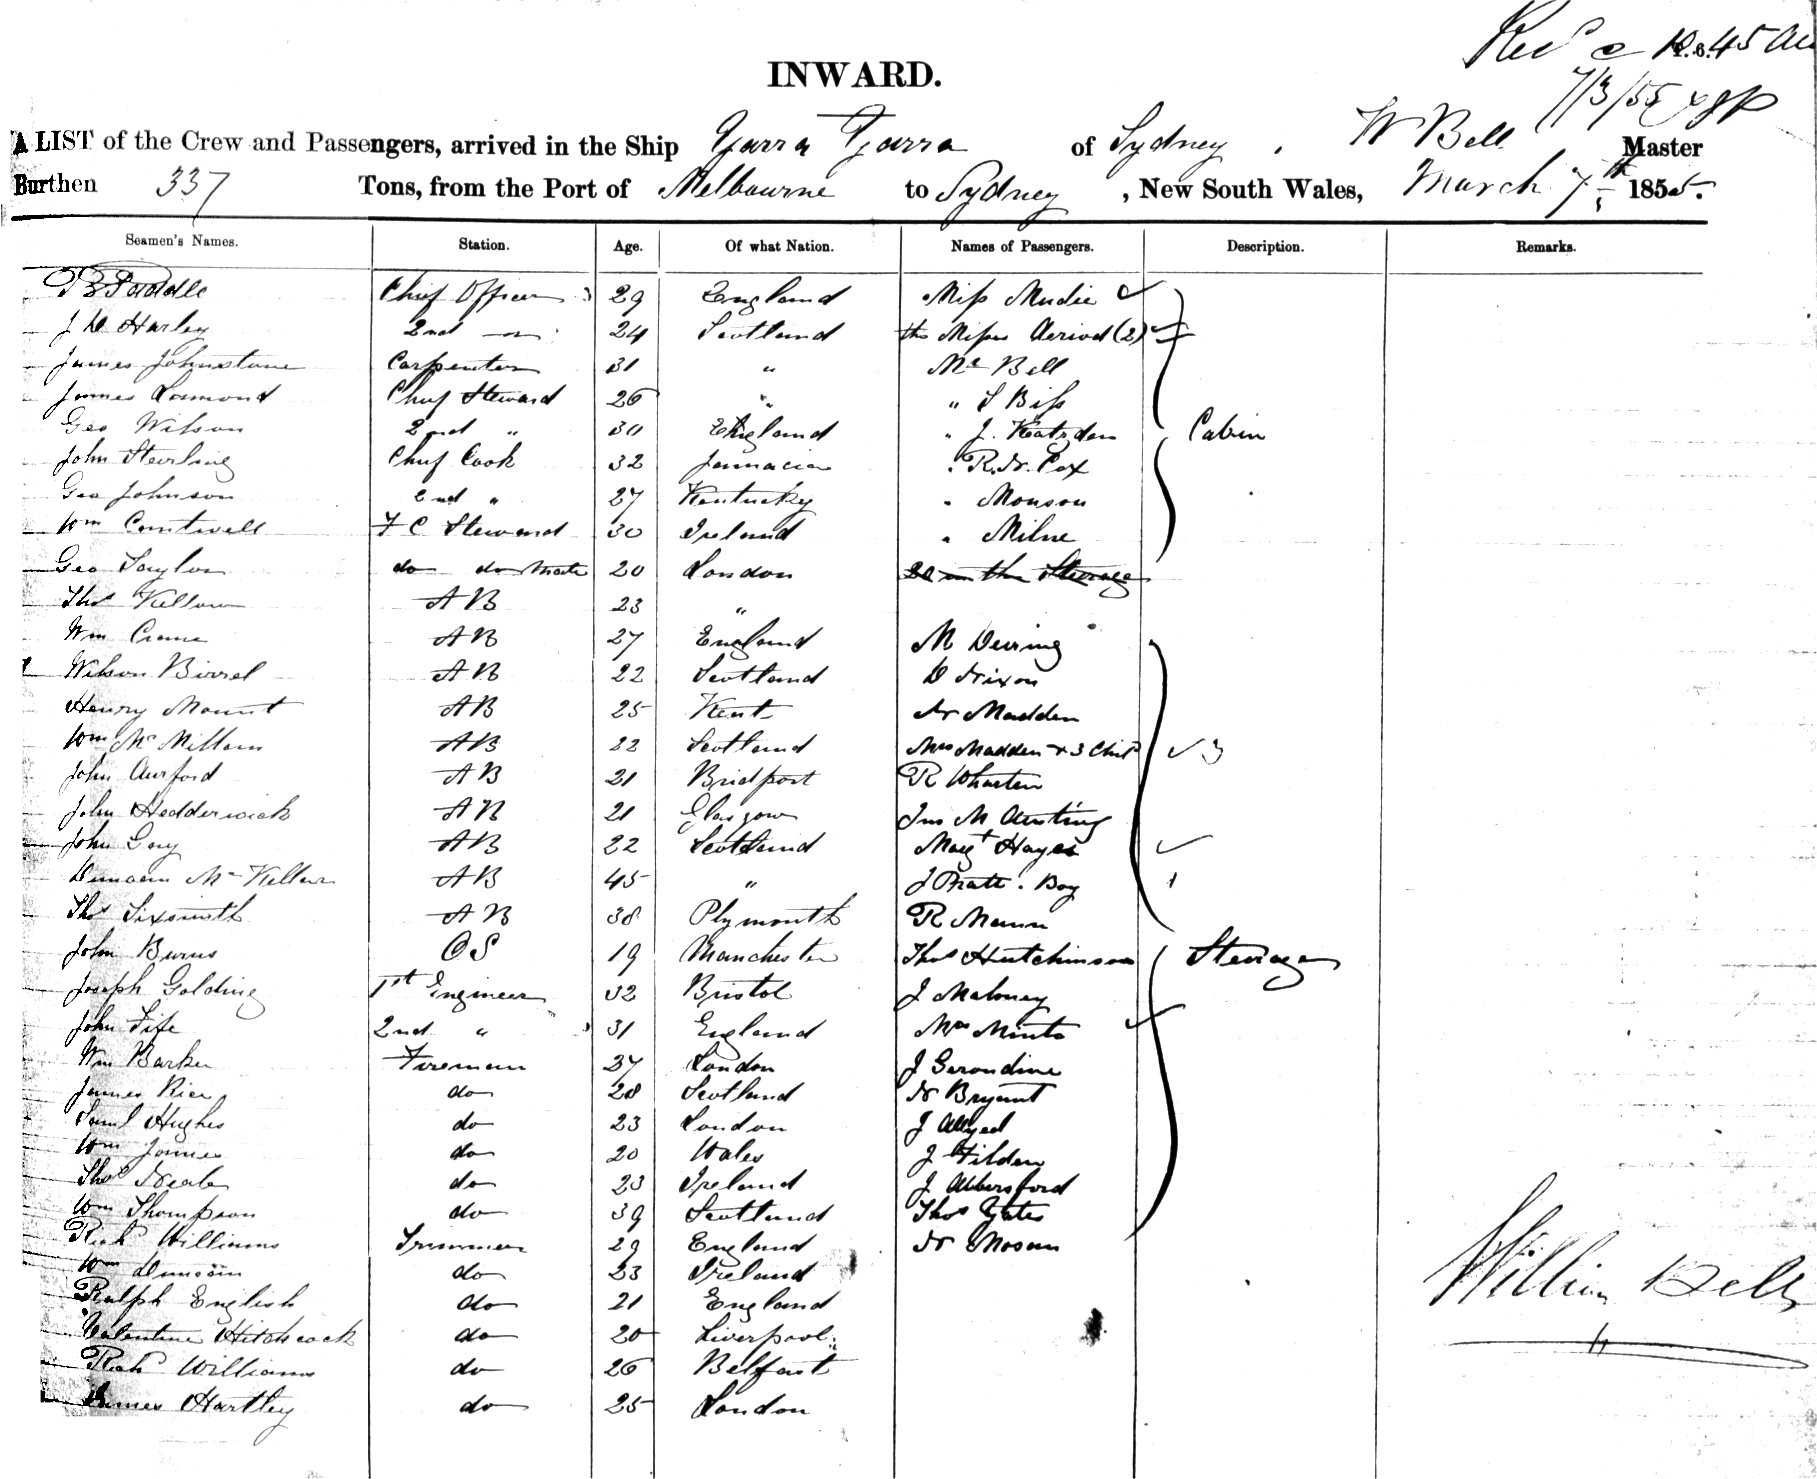 Recd 10.45 AM
7/3/55
INWARD.
A LIST of the Crew and Passengers, arrived in the Ship Yarra Yarra of Sydney, W Bell Master
Burthen 337 Tons, from the Port of Melbourne to Sydney, New South Wales, March 7th 1855.
Seamen's Names. Station. Age. Of what Nation. Names of Passengers. Description. Remarks.
B Paddle Chief Officer 29 England Miss Mudie
J D Harley 2nd " 24 Scotland the Misses (2)
James Johnstone Carpenter 31 " Mr Bell
James Lamond Chief Steward 26 " " S Biss
Geo Wilson 2nd " 30 England " J. Cabin
John Sterling Chief Cook 32 Jamacia " R. N. Cox
Geo Johnson 2nd " 27 Kentucky " Monson
Wm Cantwell F C Steward 30 Ireland " Milne
Geo Taylor do do Mate 20 London 20 in the Steerage
Thos Kellow AB 23 "
Wm Crane AB 27 England M Deering
Wilson Birrel AB 22 Scotland D Nixon
Henry Mount AB 25 Kent Mr Madden
Wm McMillan AB 22 Scotland Mrs Madden & 3 Child 3
John AB 21 Bridport R Wharton
John Hedderwick AB 21 Glasgow Jno M
John Gay AB 22 Scotland Magt Hayes
Duncan McKellar AB 45 " J Pratt. Boy 1
Thos Sixsmith AB 38 Plymouth R Mann
John Burns OS 19 Manchester Thos Hutchinson Steerage
Joseph Golding 1st Engineer 32 Bristol J Maloney
John Fife 2nd " 31 England Mrs Minto
Wm Barker Fireman 37 London J Gerondine
James Rice do 28 Scotland N Bryant
Saml Hughes do 23 London J
Wm James do 20 Wales J Tilden
Thos Neale do 23 Ireland J Abbersford
Wm Thompson do 39 Scotland Thos Yates
Richd Williams Trimmer 29 England N Mosan
Wm Duncan do 23 Ireland
Ralph English do 21 England
Valentine Hitchcock do 20 Liverpool
Richd Williams do 26 Belfast
James Hartley do 25 London
William Bell